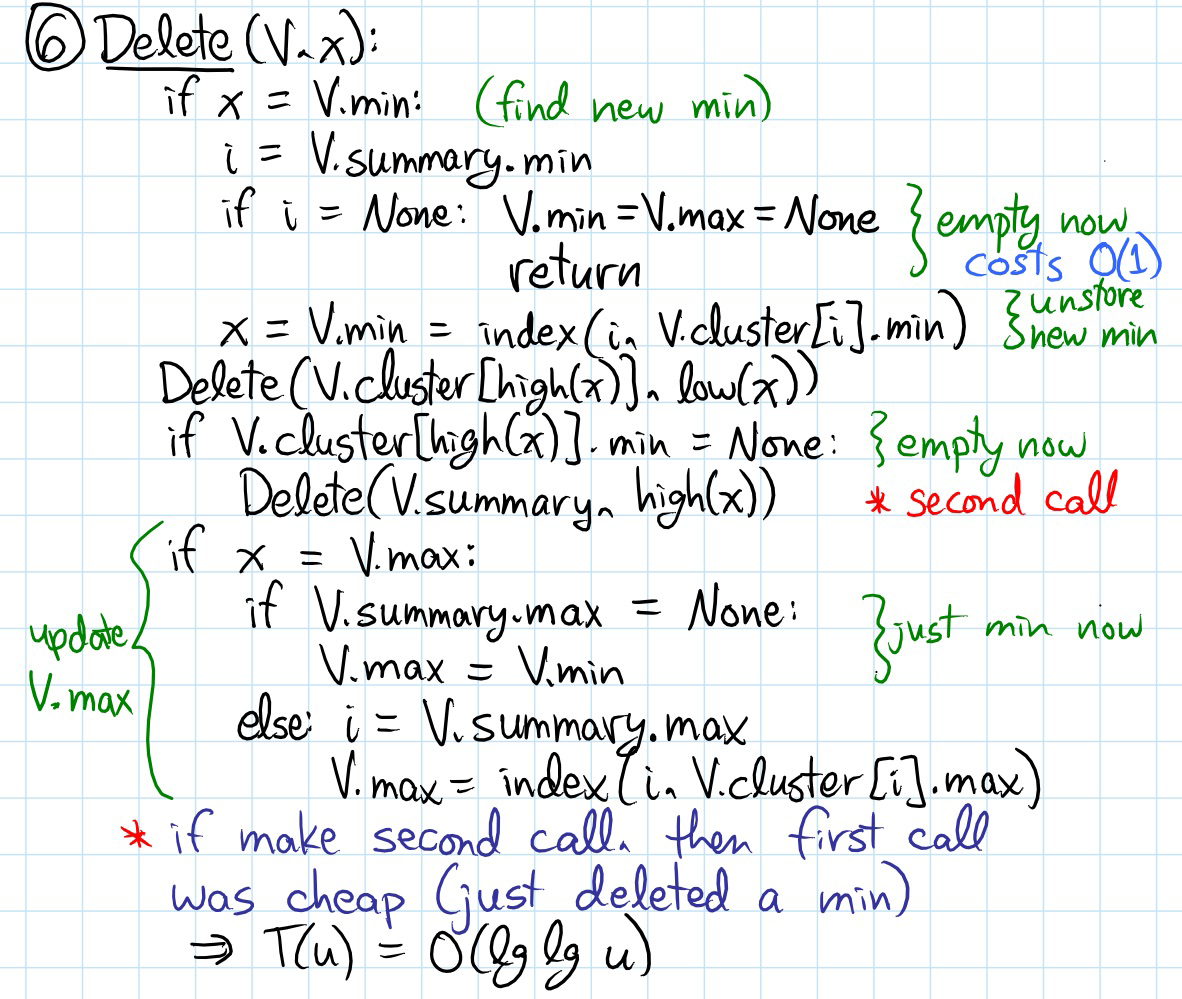 ⑥ Delete (V, x):
if x = V.min: (find new min)
i = V.summary.min
if i = None: V.min = V.max = None } empty now
return costs O(1)
x = V.min = index(i, V.cluster[i].min) } unstore new min
Delete(V.cluster[high(x)], low(x))
if V.cluster[high(x)].min = None: } empty now
Delete(V.summary, high(x)) * second call
if x = V.max:
if V.summary.max = None: } just min now
V.max = V.min
else: i = V.summary.max
V.max = index(i, V.cluster[i].max)
update
V.max
* if make second call, then first call
was cheap (just deleted a min)
⇒ T(u) = O(lg lg u)